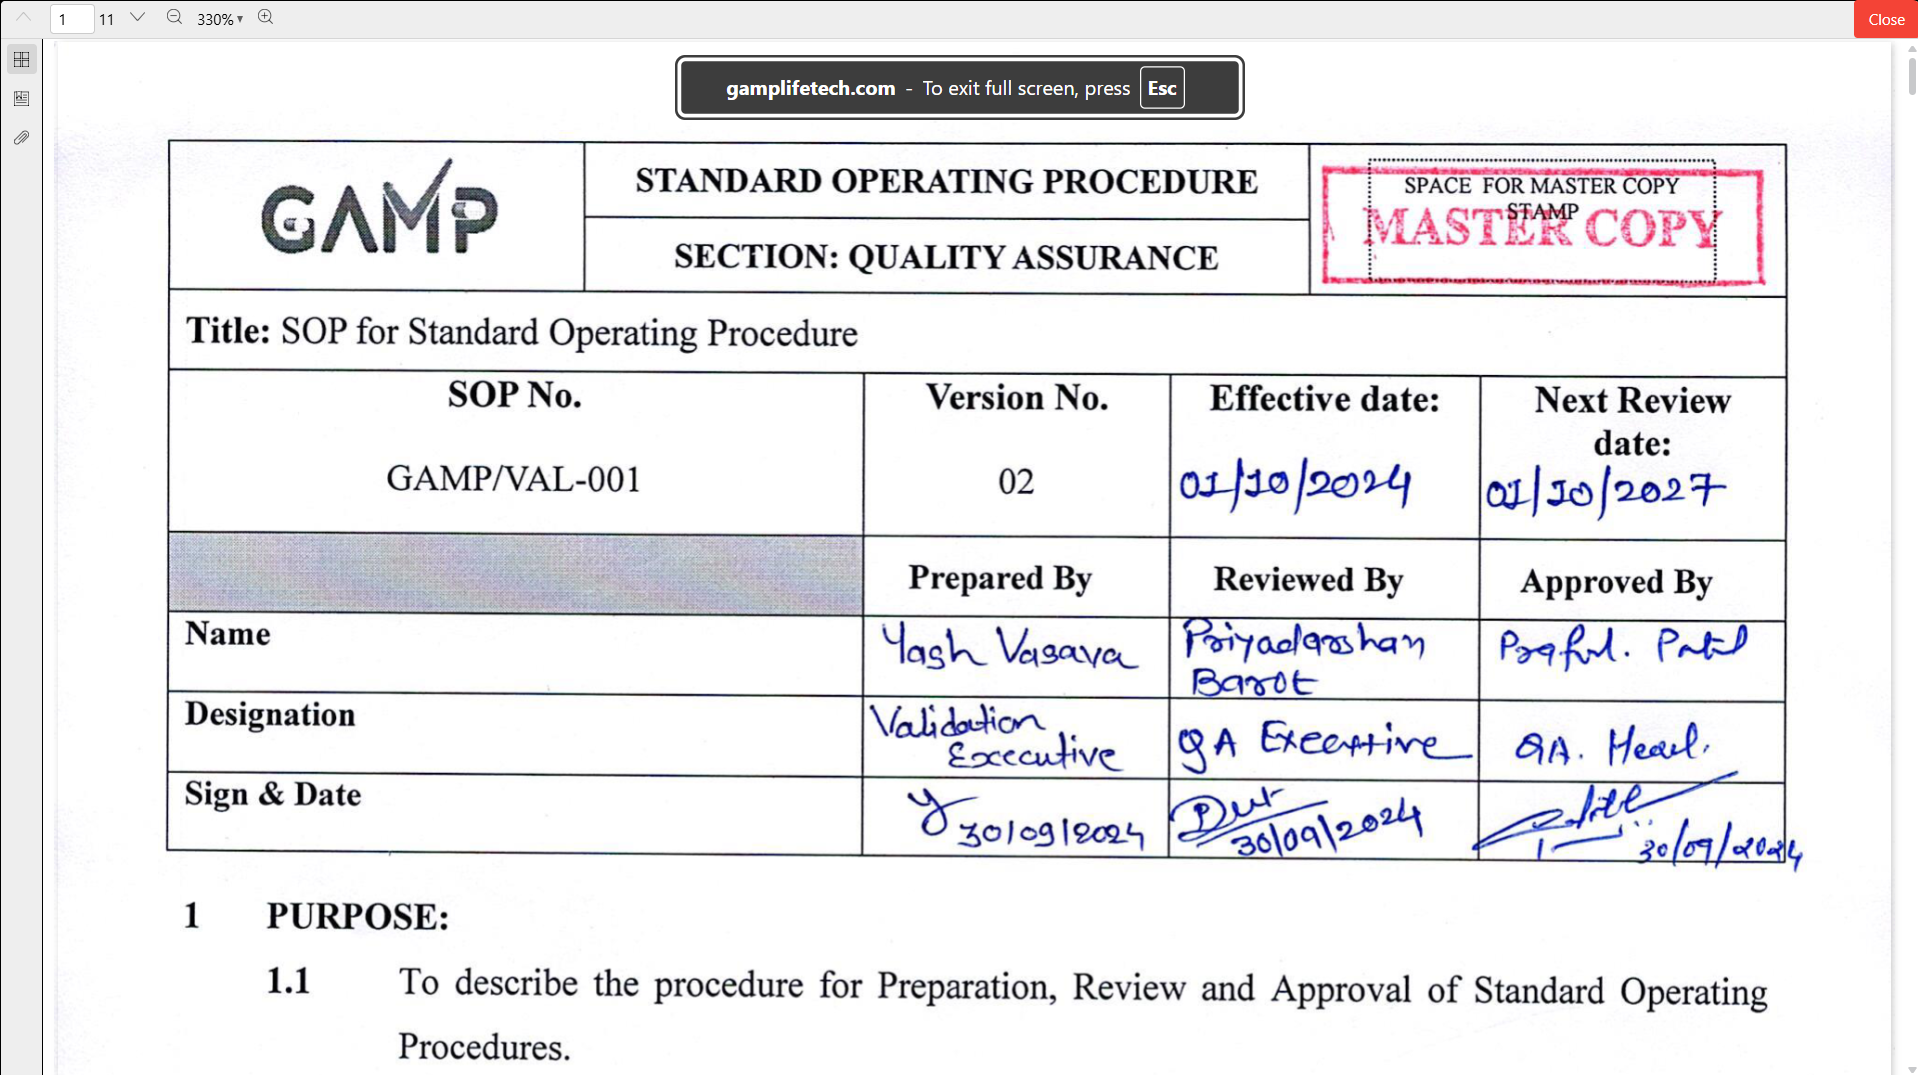 1 11 330% Close
gamplifetech.com - To exit full screen, press Esc
GAMP
STANDARD OPERATING PROCEDURE
SECTION: QUALITY ASSURANCE
SPACE FOR MASTER COPY
STAMP
MASTER COPY
Title: SOP for Standard Operating Procedure
SOP No. Version No. Effective date: Next Review
date:
GAMP/VAL-001 02 01/10/2024 01/10/2027
Prepared By Reviewed By Approved By
Name Yash Vasava Priyadarshan
Barot
Praful. Patel
Designation Validation
Executive
QA Executive QA. Head.
Sign & Date 30/09/2024 30/09/2024 30/09/2024
1 PURPOSE:
1.1 To describe the procedure for Preparation, Review and Approval of Standard Operating
Procedures.